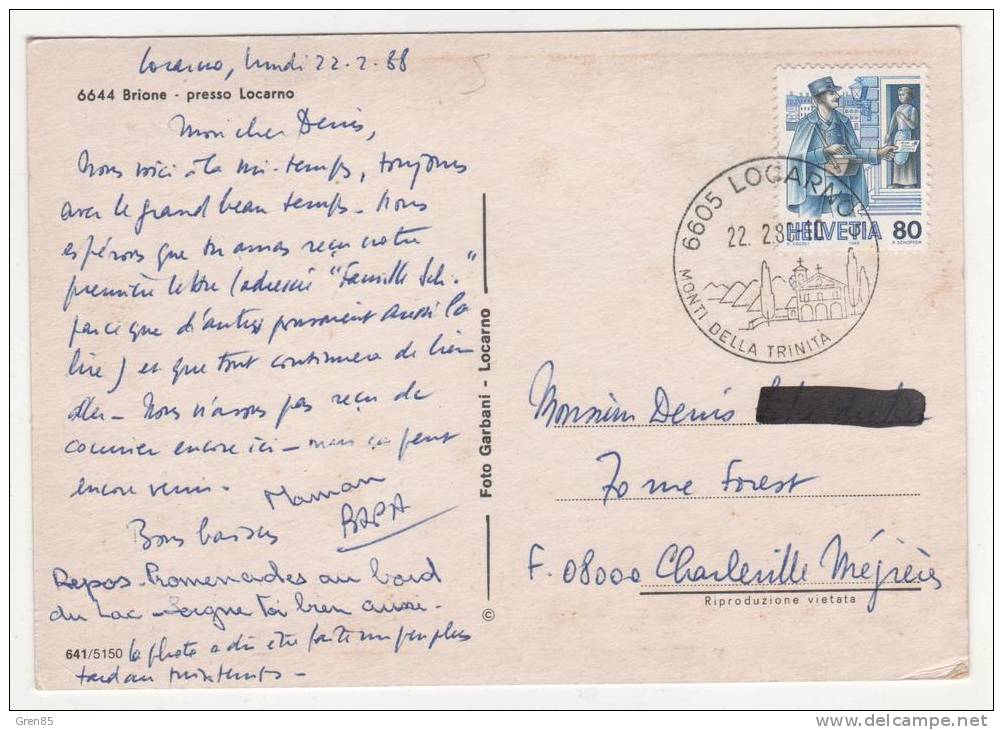 Locarno, lundi 22.2.88
6644 Brione - presso Locarno
Mon cher Denis,
Nous voici à la mi-temps, toujours
avec le grand beau temps. Nous
espérons que tu auras reçu notre
première lettre (adressée "Famille Sch."
parce que d'autres pouvaient aussi la
lire) et que tout continuera de bien
aller - Nous n'avons pas reçu de
courrier encore ici - mais ça peut
encore venir.
Maman
Bons baisers
PAPA
Repos - Promenades au bord
du Lac - Soigne toi bien aussi -
641/5150
la photo a dû être faite un peu plus
tard au printemps -
Foto Garbani - Locarno
©
HELVETIA 80
6605 LOCARNO
22. 2.88-10
MONTI DELLA TRINITÀ
Monsieur Denis
70 rue Forest
F. 08000 Charleville Mézières
Riproduzione vietata
Gren85
www.delcampe.net